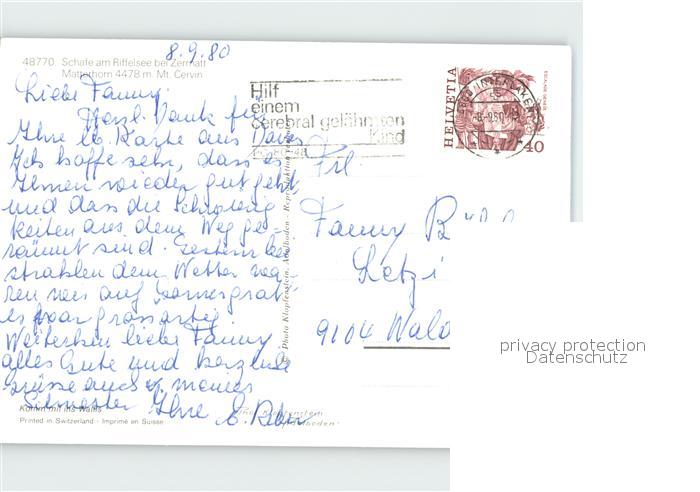 8.9.80
48770. Schafe am Riffelsee bei Zermatt
Matterhorn 4478 m. Mt. Cervin
Liebe Fanny.
Herzl. Dank für
Ihre lb. Karte aus Davos
Ich hoffe sehr, dass es
Ihnen wieder gut geht
und dass die Schwierig
keiten aus dem Weg ge-
räumt sind. Gestern bei
strahlendem Wetter
waren wir auf Gornergrat
es war grossartig
Weiterhin liebe Fanny
alles Gute und herzliche
Grüsse auch v. meiner
Schwester Ihre E.
Hilf
einem
cerebral gelähmten
Kind
HELVETIA
40
Frl.
Fanny
9104 Wald
© Photo Klopfenstein, Adelboden - Reproduktion verboten
Komm mit ins Wallis
Printed in Switzerland - Imprimé en Suisse
privacy protection
Datenschutz